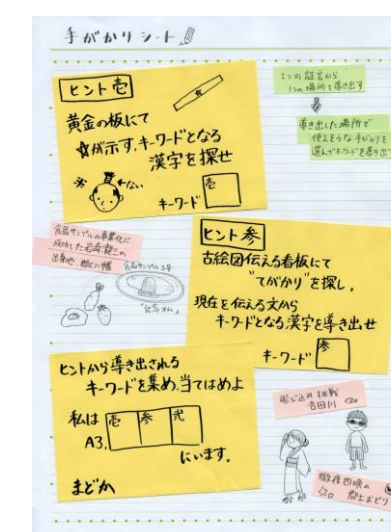 手がかりシート
ヒント壱
黄金の板にて
☆が示す、キーワードとなる
漢字を探せ
←ない
キーワード 壱
1つの証言から
1つの場所を導き出す
導き出した場所で
使えそうな手がかりを
選んでキーワードを導き出す
食品サンプルの事業化に
成功した岩崎瀧三の
出身地、郡上八幡
食品サンプル1号
「記念オム」
ヒント参
古絵図伝える看板にて
"てがかり"を探し、
現在を伝える文から
キーワードとなる漢字を導き出せ
キーワード 参
ヒントから導き出される
キーワードを集め、当てはめよ
私は 壱 参 弐
A3.
にいます。
まどか
飛び込み挑戦
吉田川
徹夜四晩の
郡上おどり